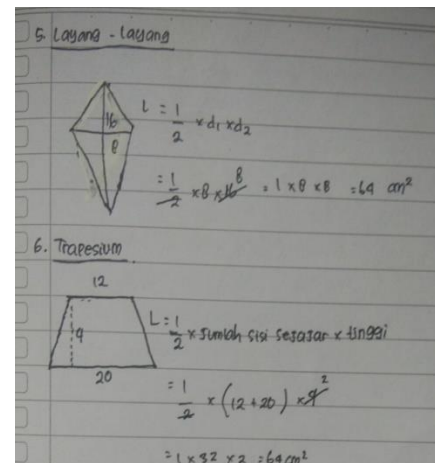 5. Layang - Layang
16
8
L = 1/2 x d1 x d2
= 1/2 x 8 x 16 8 = 1 x 8 x 8 = 64 cm²
6. Trapesium
12
4
20
L = 1/2 x Jumlah sisi sejajar x tinggi
= 1/2 x (12 + 20) x 4 2
= 1 x 32 x 2 = 64 cm²